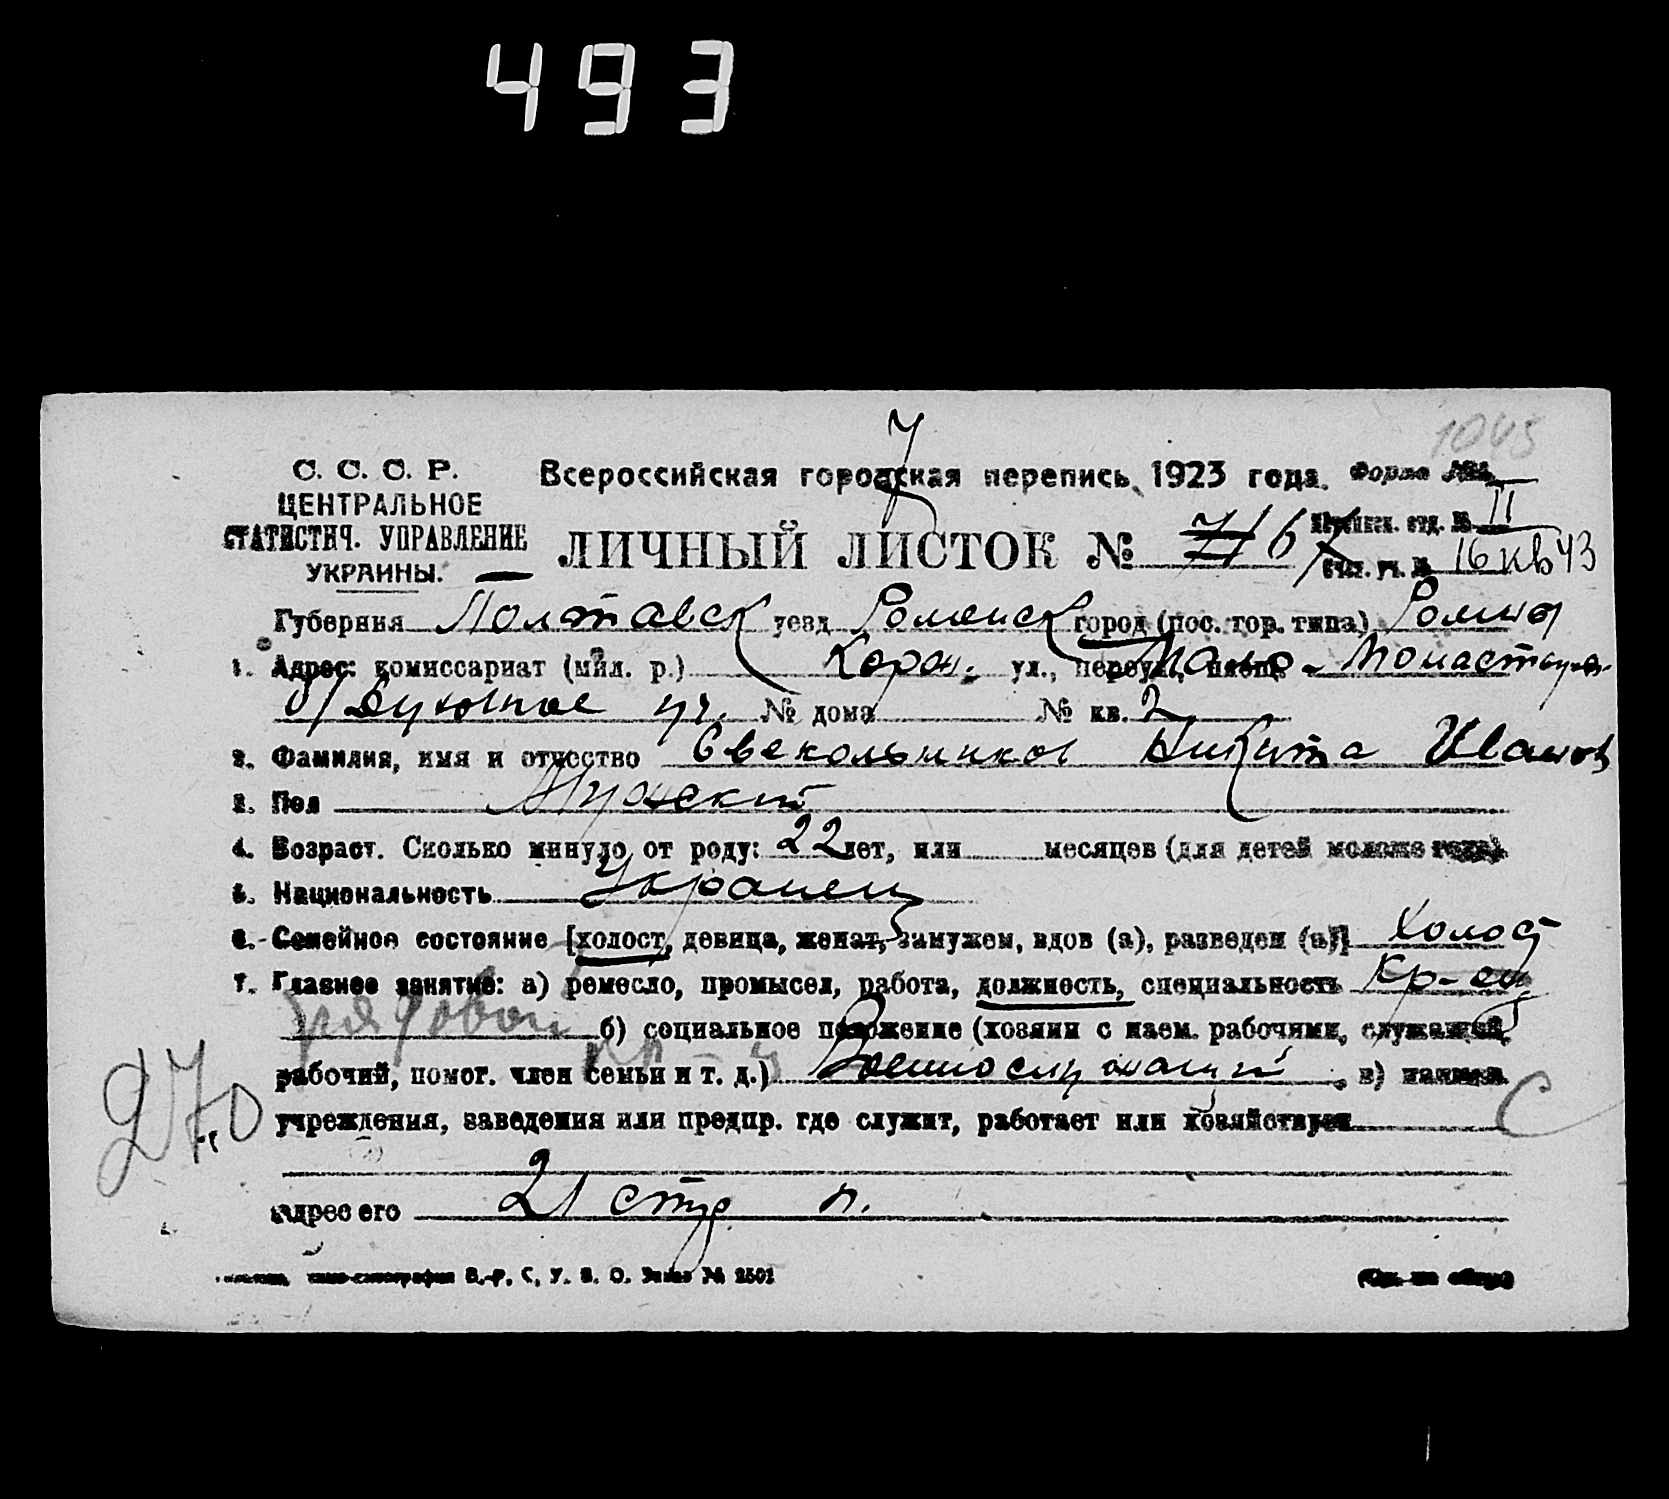 493
1045
С. С. С. Р.
ЦЕНТРАЛЬНОЕ
СТАТИСТИЧ. УПРАВЛЕНИЕ
УКРАИНЫ.
Всероссийская городская перепись 1923 года. Форма
ЛИЧНЫЙ ЛИСТОК №
отд. № II
уч. № 16 кв 43
Губерния Полтавск уезд Роменск город (пос. гор. типа) Ромны
1. Адрес: комиссариат (мил. р.) ул., переул., площ.
уч. № дома № кв. 2
2. Фамилия, имя и отчество Свекольников Никита Иванов
3. Пол Мужской
4. Возраст. Сколько минуло от роду: 22 лет, или месяцев (для детей моложе года)
5. Национальность Украинец
6. Семейное состояние [холост, девица, женат, замужем, вдов (а), разведен (а)] Холост
7. Главное занятие: а) ремесло, промысел, работа, должность, специальность Кр-ец
рядовой б) социальное положение (хозяин с наем. рабочими, служащий,
рабочий, помог. член семьи и т. д.) Военнослужащий, в) наимен.
27.0 учреждения, заведения или предпр. где служит, работает или хозяйствует С
адрес его 21 стр п.
В.-Р. С. У. В. О. Заказ № 2501
(См. на обор.)